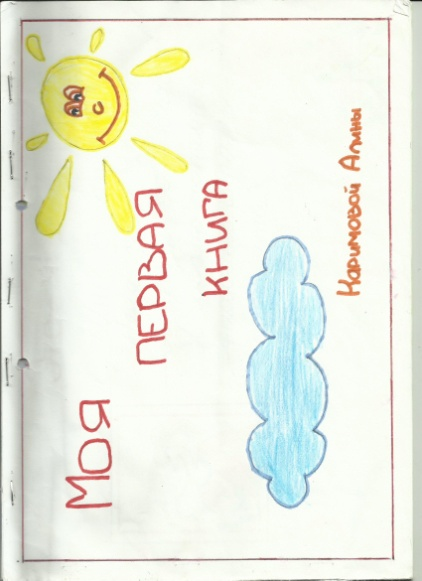 Моя
ПЕРВАЯ
КНИГА
Каримовой Алины